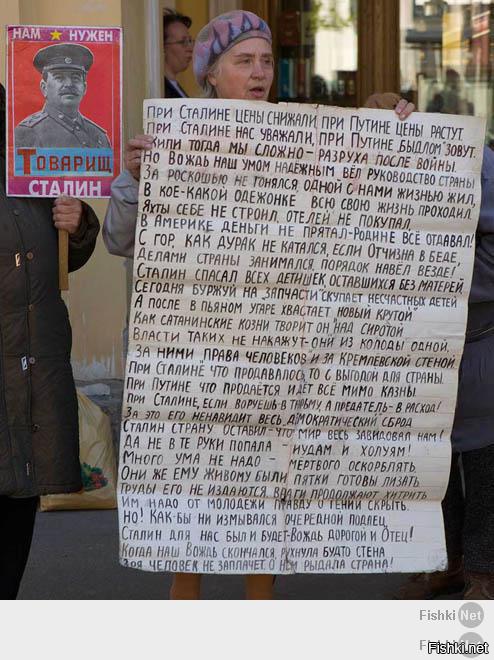 НАМ НУЖЕН
ТОВАРИЩ
СТАЛИН
ПРИ СТАЛИНЕ ЦЕНЫ СНИЖАЛИ, ПРИ ПУТИНЕ ЦЕНЫ РАСТУТ
ПРИ СТАЛИНЕ НАС УВАЖАЛИ, ПРИ ПУТИНЕ „БЫДЛОМ" ЗОВУТ.
ЖИЛИ ТОГДА МЫ СЛОЖНО – РАЗРУХА ПОСЛЕ ВОЙНЫ.
НО ВОЖДЬ НАШ УМОМ НАДЁЖНЫМ ВЁЛ РУКОВОДСТВО СТРАНЫ
ЗА РОСКОШЬЮ НЕ ГОНЯЛСЯ, ОДНОЙ С НАМИ ЖИЗНЬЮ ЖИЛ,
В КОЕ-КАКОЙ ОДЕЖОНКЕ ВСЮ СВОЮ ЖИЗНЬ ПРОХОДИЛ.
ЯХТЫ СЕБЕ НЕ СТРОИЛ, ОТЕЛЕЙ НЕ ПОКУПАЛ,
В АМЕРИКЕ ДЕНЬГИ НЕ ПРЯТАЛ – РОДИНЕ ВСЁ ОТДАВАЛ!
С ГОР, КАК ДУРАК НЕ КАТАЛСЯ, ЕСЛИ ОТЧИЗНА В БЕДЕ,
ДЕЛАМИ СТРАНЫ ЗАНИМАЛСЯ, ПОРЯДОК НАВЁЛ ВЕЗДЕ!
СТАЛИН СПАСАЛ ВСЕХ ДЕТИШЕК, ОСТАВШИХСЯ БЕЗ МАТЕРЕЙ,
СЕГОДНЯ БУРЖУЙ НА „ЗАПЧАСТИ" СКУПАЕТ НЕСЧАСТНЫХ ДЕТЕЙ
А ПОСЛЕ В ПЬЯНОМ УГАРЕ ХВАСТАЕТ „НОВЫЙ КРУТОЙ"
КАК САТАНИНСКИЕ КОЗНИ ТВОРИТ ОН НАД СИРОТОЙ
ВЛАСТИ ТАКИХ НЕ НАКАЖУТ – ОНИ ИЗ КОЛОДЫ ОДНОЙ,
ЗА НИМИ „ПРАВА ЧЕЛОВЕКОВ" И ЗА КРЕМЛЁВСКОЙ СТЕНОЙ.
ПРИ СТАЛИНЕ ЧТО ПРОДАВАЛОСЬ, ТО С ВЫГОДОЙ ДЛЯ СТРАНЫ.
ПРИ ПУТИНЕ ЧТО ПРОДАЁТСЯ ИДЁТ ВСЁ МИМО КАЗНЫ.
ПРИ СТАЛИНЕ, ЕСЛИ ВОРУЕШЬ В ТЮРЬМУ, А ПРЕДАТЕЛЬ – В РАСХОД!
ЗА ЭТО ЕГО НЕНАВИДИТ ВЕСЬ ДЕМОКРАТИЧЕСКИЙ СБРОД
СТАЛИН СТРАНУ ОСТАВИЛ – ЧТО МИР ВЕСЬ ЗАВИДОВАЛ НАМ!
ДА НЕ В ТЕ РУКИ ПОПАЛА – ИУДАМ И ХОЛУЯМ!
МНОГО УМА НЕ НАДО – МЕРТВОГО ОСКОРБЛЯТЬ.
ОНИ ЖЕ ЕМУ ЖИВОМУ БЫЛИ ПЯТКИ ГОТОВЫ ЛИЗАТЬ
ТРУДЫ ЕГО НЕ ИЗДАЮТСЯ, ВРАГИ ПРОДОЛЖАЮТ ХИТРИТЬ
ИМ НАДО ОТ МОЛОДЕЖИ ПРАВДУ О ГЕНИИ СКРЫТЬ.
НО! КАК-БЫ НИ ИЗМЫВАЛСЯ ОЧЕРЕДНОЙ ПОДЛЕЦ,
СТАЛИН ДЛЯ НАС БЫЛ И БУДЕТ – ВОЖДЬ ДОРОГОЙ И ОТЕЦ!
КОГДА НАШ ВОЖДЬ СКОНЧАЛСЯ, РУХНУЛА БУДТО СТЕНА
ЗРЯ ЧЕЛОВЕК НЕ ЗАПЛАЧЕТ О НЁМ РЫДАЛА СТРАНА!
Fishki Net
Fishki Net
Fishki.net